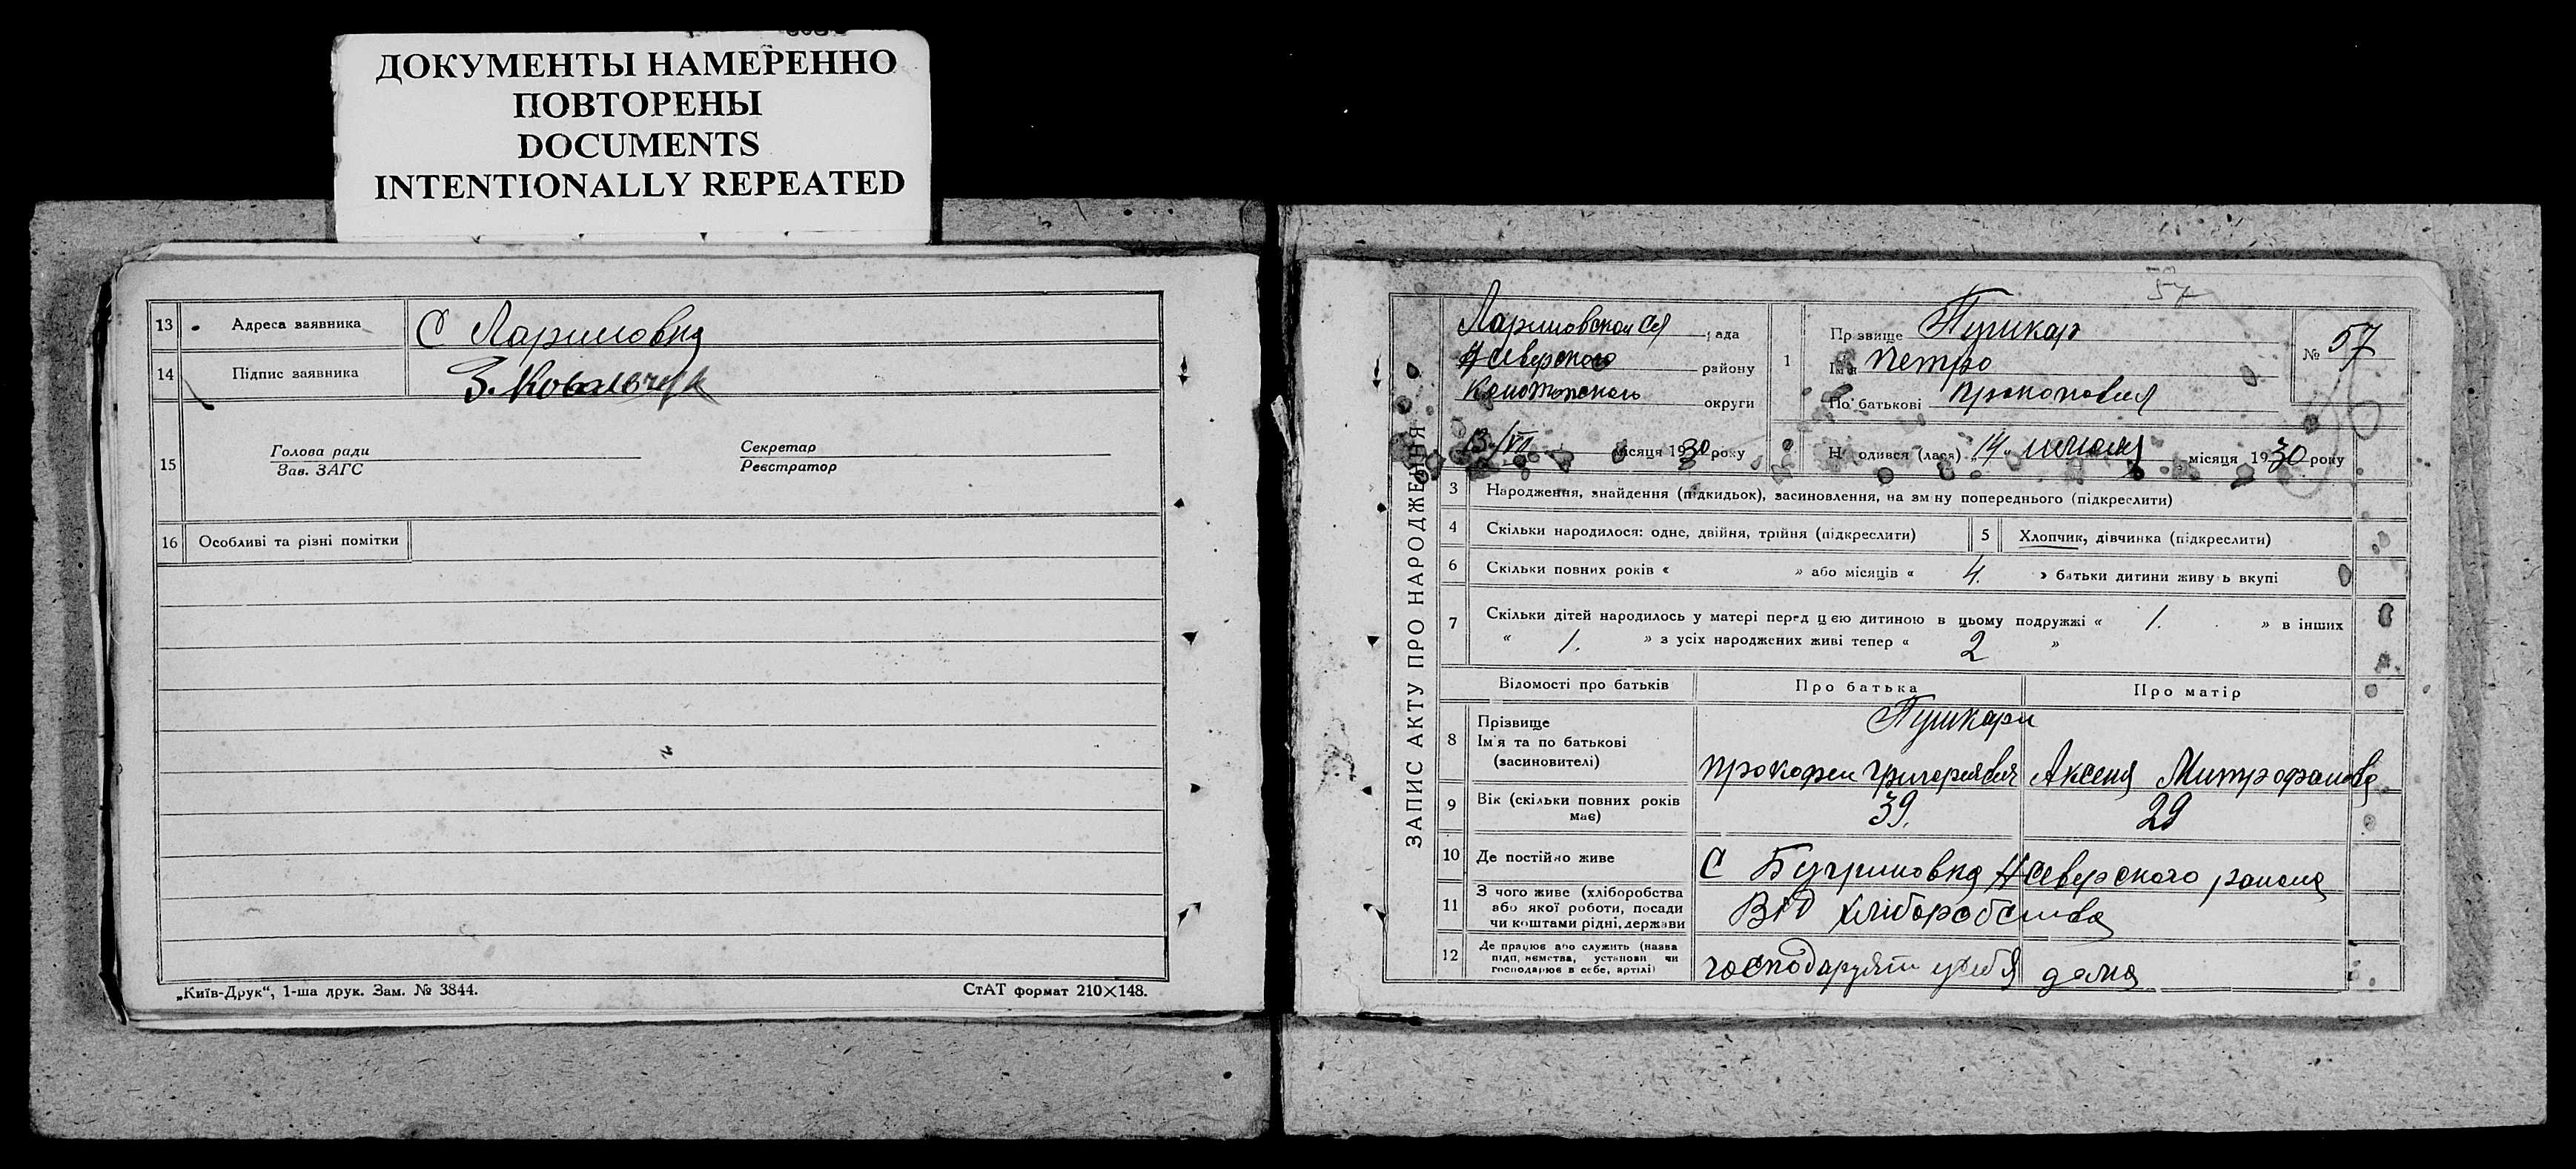 ДОКУМЕНТЫ НАМЕРЕННО
ПОВТОРЕНЫ
DOCUMENTS
INTENTIONALLY REPEATED
13 Адреса заявника С Лариновка
14 Підпис заявника З. Ковальчук
15 Голова ради Секретар
Зав. ЗАГС Реєстратор
16 Особливі та різні помітки
„Київ-Друк“, 1-ша друк. Зам. № 3844. СтАТ формат 210×148.
57
ЗАПИС АКТУ ПРО НАРОДЖЕННЯ
рада
Н Северского району
Конотопского округи
13/VII місяця 1930 року
1 Прізвище Пушкар
Ім'я Петро
По батькові
№ 57
Народився (лася) 14 місяця 1930 року
3 Народження, знайдення (підкидьок), засиновлення, на зміну попереднього (підкреслити)
4 Скільки народилося: одне, двійня, трійня (підкреслити) 5 Хлопчик, дівчинка (підкреслити)
6 Скільки повних років « » або місяців « 4. » батьки дитини живуть вкупі
7 Скільки дітей народилось у матері перед цією дитиною в цьому подружжі « 1. » в інших
« 1. » з усіх народжених живі тепер « 2 »
Відомості про батьків Про батька Про матір
8 Прізвище Пушкари
Ім'я та по батькові
(засновителі) Прокофеи Григориевич Аксеня Митрофанова
9 Вік (скільки повних років 39. 29
має)
10 Де постійно живе С Бугриновка Н Северского района
11 З чого живе (хліборобства
або якої роботи, посади Від хліборобства
чи коштами рідні, держави
12 Де працює або служить (назва
підприємства, установи чи господарует у себя дома
господарює в себе, артілі)